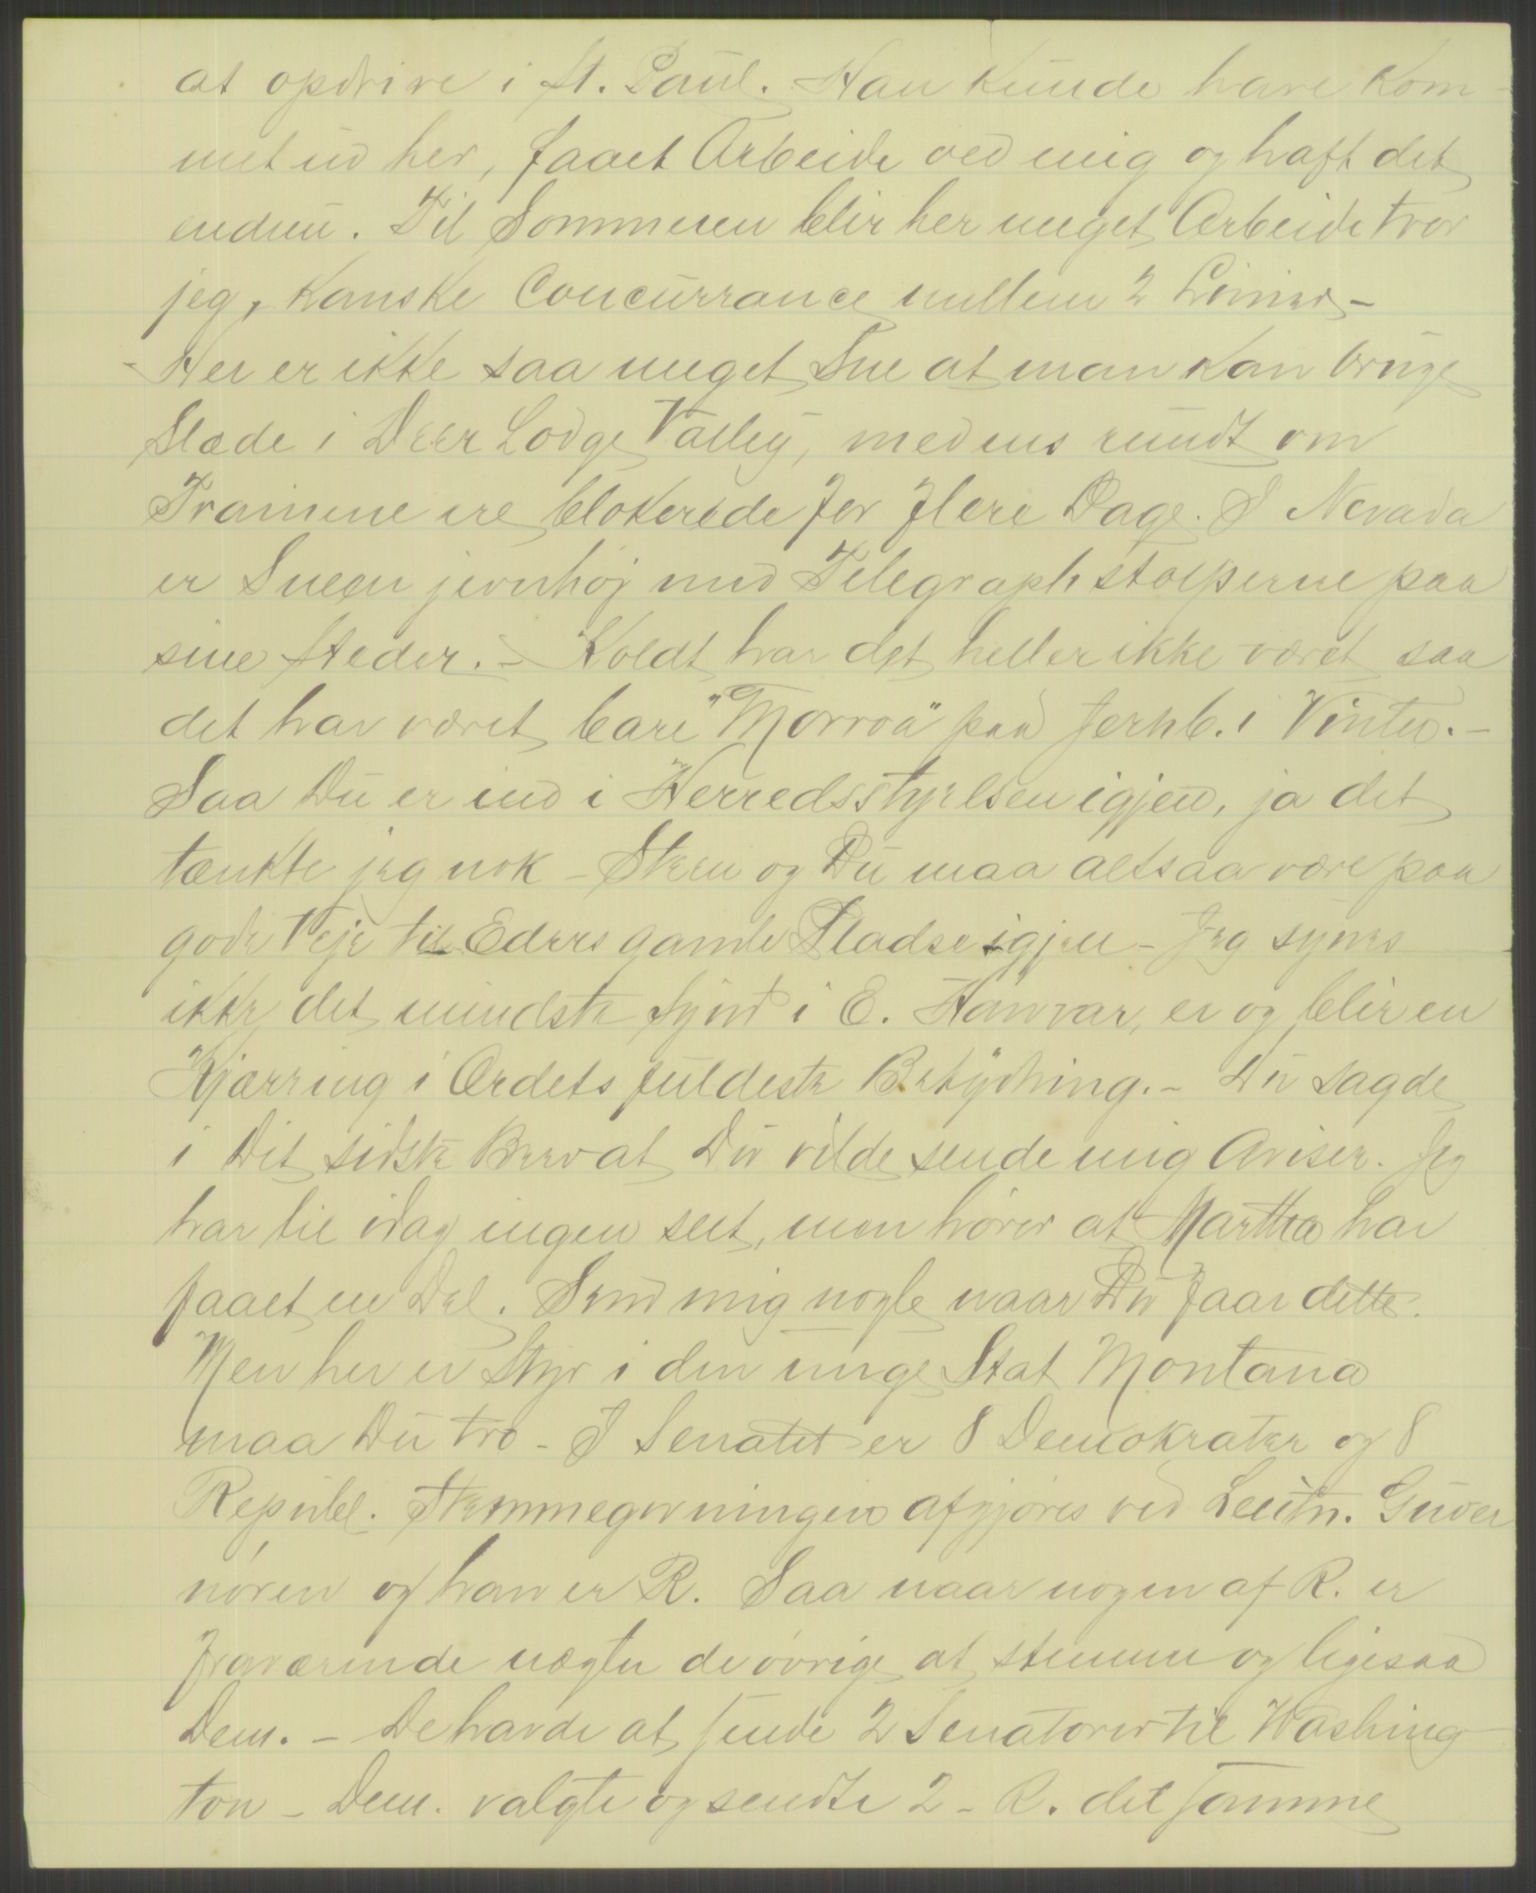 at opdrive i St. Paul. Han kunde have kom-
met ud her, faaet Arbeide ved mig og haft det
endnu. Til Sommeren blir her meget Arbeide tror
jeg, kanske Concurrance mellem 2 Linier. -
- Her er ikke saa meget Sne at man kan bruge
Slæde i Deer Lodge Valley, medens rundt om
Trainene ere blokerede for flere Dage. I Nevada
er Sneen jevnhøj med Telegraphstolperne paa
sine Steder. - Koldt har det heller ikke været saa
det har været bare "Morroa" paa Jernb. i Vinter. -
Saa Du er ind i Herredsstyrelsen igjen, ja det
tænkte jeg nok - Steen og Du maa altsaa være paa
gode Veje til Eders gamle Pladse igjen - Jeg synes
ikke det mindste Synd i E. Han var, er og blir en
Kjærring i Ordets fuldeste Betydning. - Du sagde
i Dit sidste Brev at Du vilde sende mig Aviser. Jeg
har til idag ingen seet, men hører at Martha har
faaet en Del. Send mig nogle naar Du faar dette.
Men her er Styr i den unge Stat Montana
maa Du tro - I Senatet er 8 Demokrater og 8
Republ. Stemmegivningen afgjøres ved Leutn. Guver
nøren og han er R. Saa naar nogen af R. er
fraværende nægter de øvrige at stemme og ligesaa
Dem. - De havde at sende 2 Senatorer til Washing
ton - Dem. valgte og sendte 2 - R. det samme